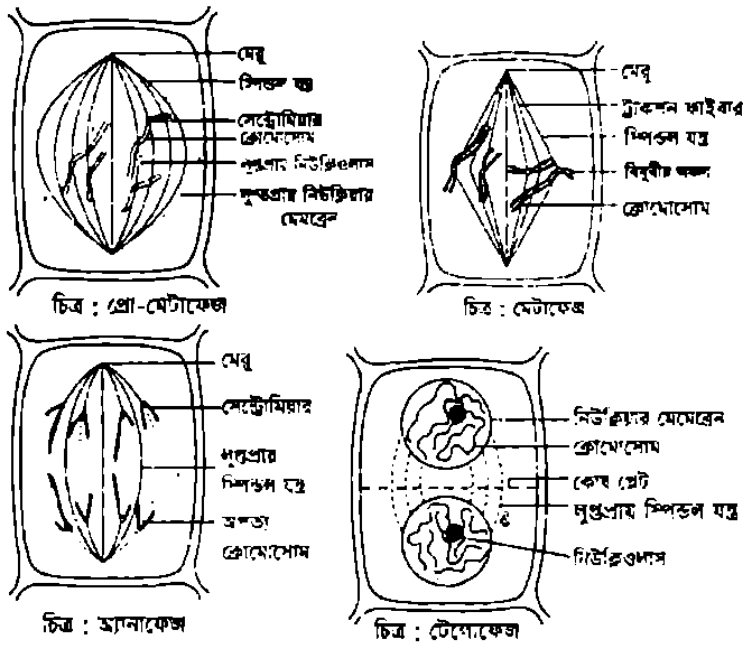 মেরু
স্পিন্ডল যন্ত্র
সেন্ট্রোমিয়ার
ক্রোমোসোম
লুপ্তপ্রায় নিউক্লিওলাস
লুপ্তপ্রায় নিউক্লিয়ার
মেমব্রেন
চিত্র : প্রো-মেটাফেজ
মেরু
ট্রাকশন ফাইবার
স্পিন্ডল যন্ত্র
বিষুবীয় অঞ্চল
ক্রোমোসোম
চিত্র : মেটাফেজ
মেরু
সেন্ট্রোমিয়ার
লুপ্তপ্রায়
স্পিন্ডল যন্ত্র
অপত্য
ক্রোমোসোম
চিত্র : অ্যানাফেজ
নিউক্লিয়ার মেমেব্রেন
ক্রোমোসোম
কোষ প্লেট
লুপ্তপ্রায় স্পিন্ডল যন্ত্র
নিউক্লিওলাস
চিত্র : টেলোফেজ